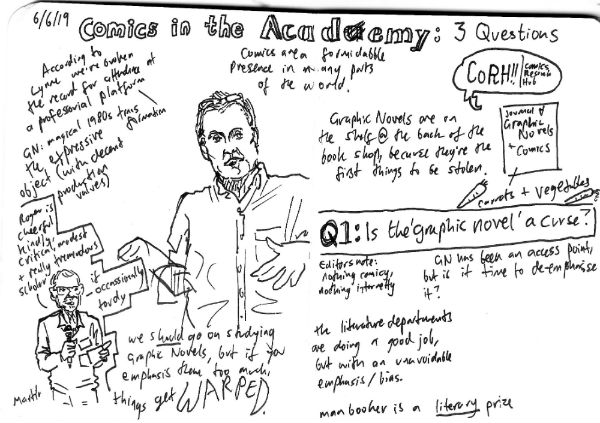 6/6/19
Comics in the Academy: 3 Questions
According to
Lynne we've broken
the record for attendance at
a professorial platform
GN: magical 1980s trans
formation
the expressive
object (with decent
production
values)
Comics are a formidable
presence in many parts
of the world.
CoRH!!
Comics
Research
Hub
Graphic Novels are on
the shelf @ the back of the
book shop, because they're the
first things to be stolen.
Journal of
Graphic
Novels
+ Comics
carrots + vegetables
Q1: Is the 'graphic novel' a curse?
Roger is
cheerful
kindly
critical, modest
+ really tremendous
scholar
if
occassionally
tardy
Editors note:
nothing comicy,
nothing internetty
GN has been an access point,
but is it time to de-emphasise
it?
we should go on studying
Graphic Novels, but if you
emphasis them too much,
things get WARPED.
the literature departments
are doing a good job,
but with an unavoidable
emphasis/bias.
man booker is a literary prize